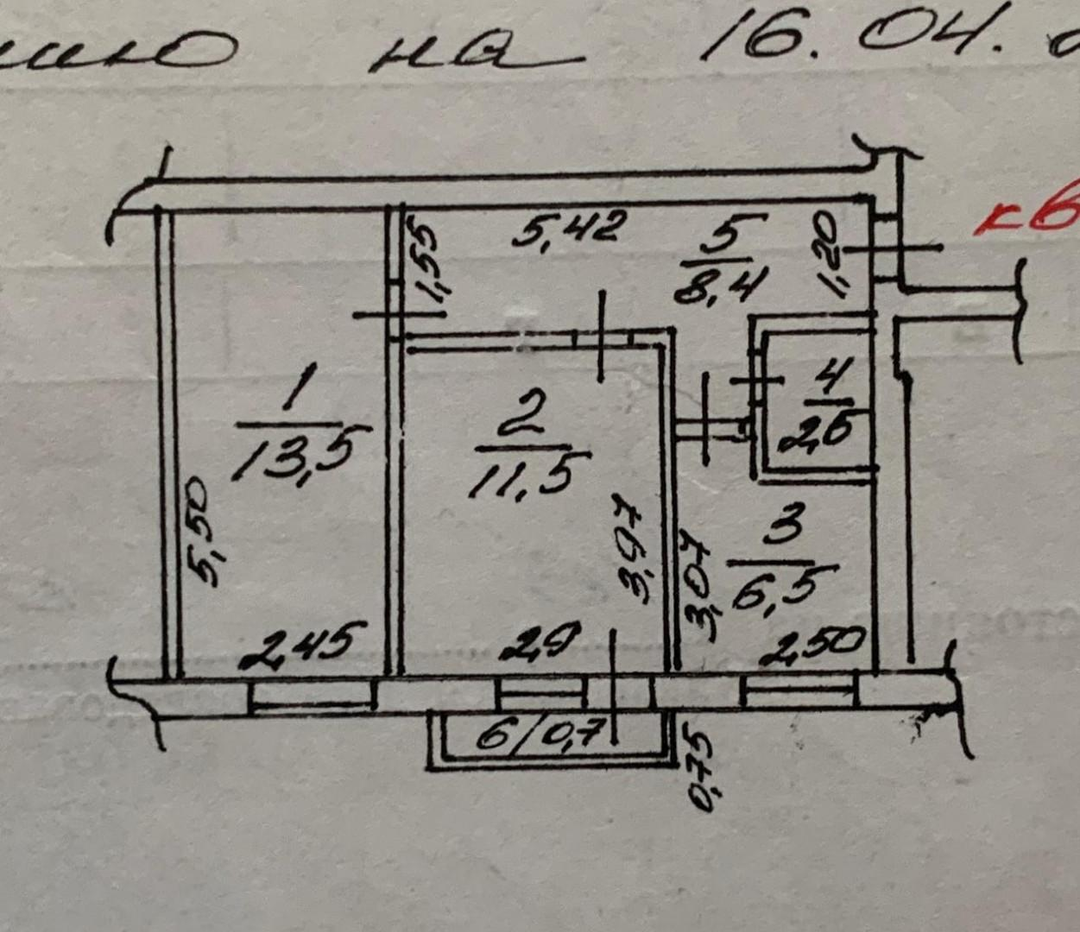 на 16.04.
кв
5,42
5
8,4
1,55
1,20
1
13,5
2
11,5
4
2,6
3
6,5
5,50
3,97
3,07
2,45
2,9
2,50
6/0,7
0,75